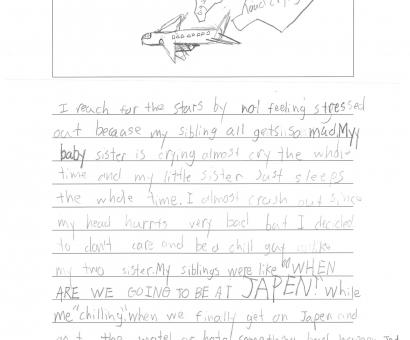 loud crying
I reach for the stars by not feeling stressed
out because my sibling all gets so mad. My
baby sister is crying almost cry the whole
time and my little sister Just sleeps
the whole time. I almost crash out since
my head hurrts very bad but I decided
to don't care and be a chill guy unlike
my two sister. My siblings were like "WHEN
ARE WE GOING TO BE AT JAPEN!" While
me "chilling". When we finally get on Japen and